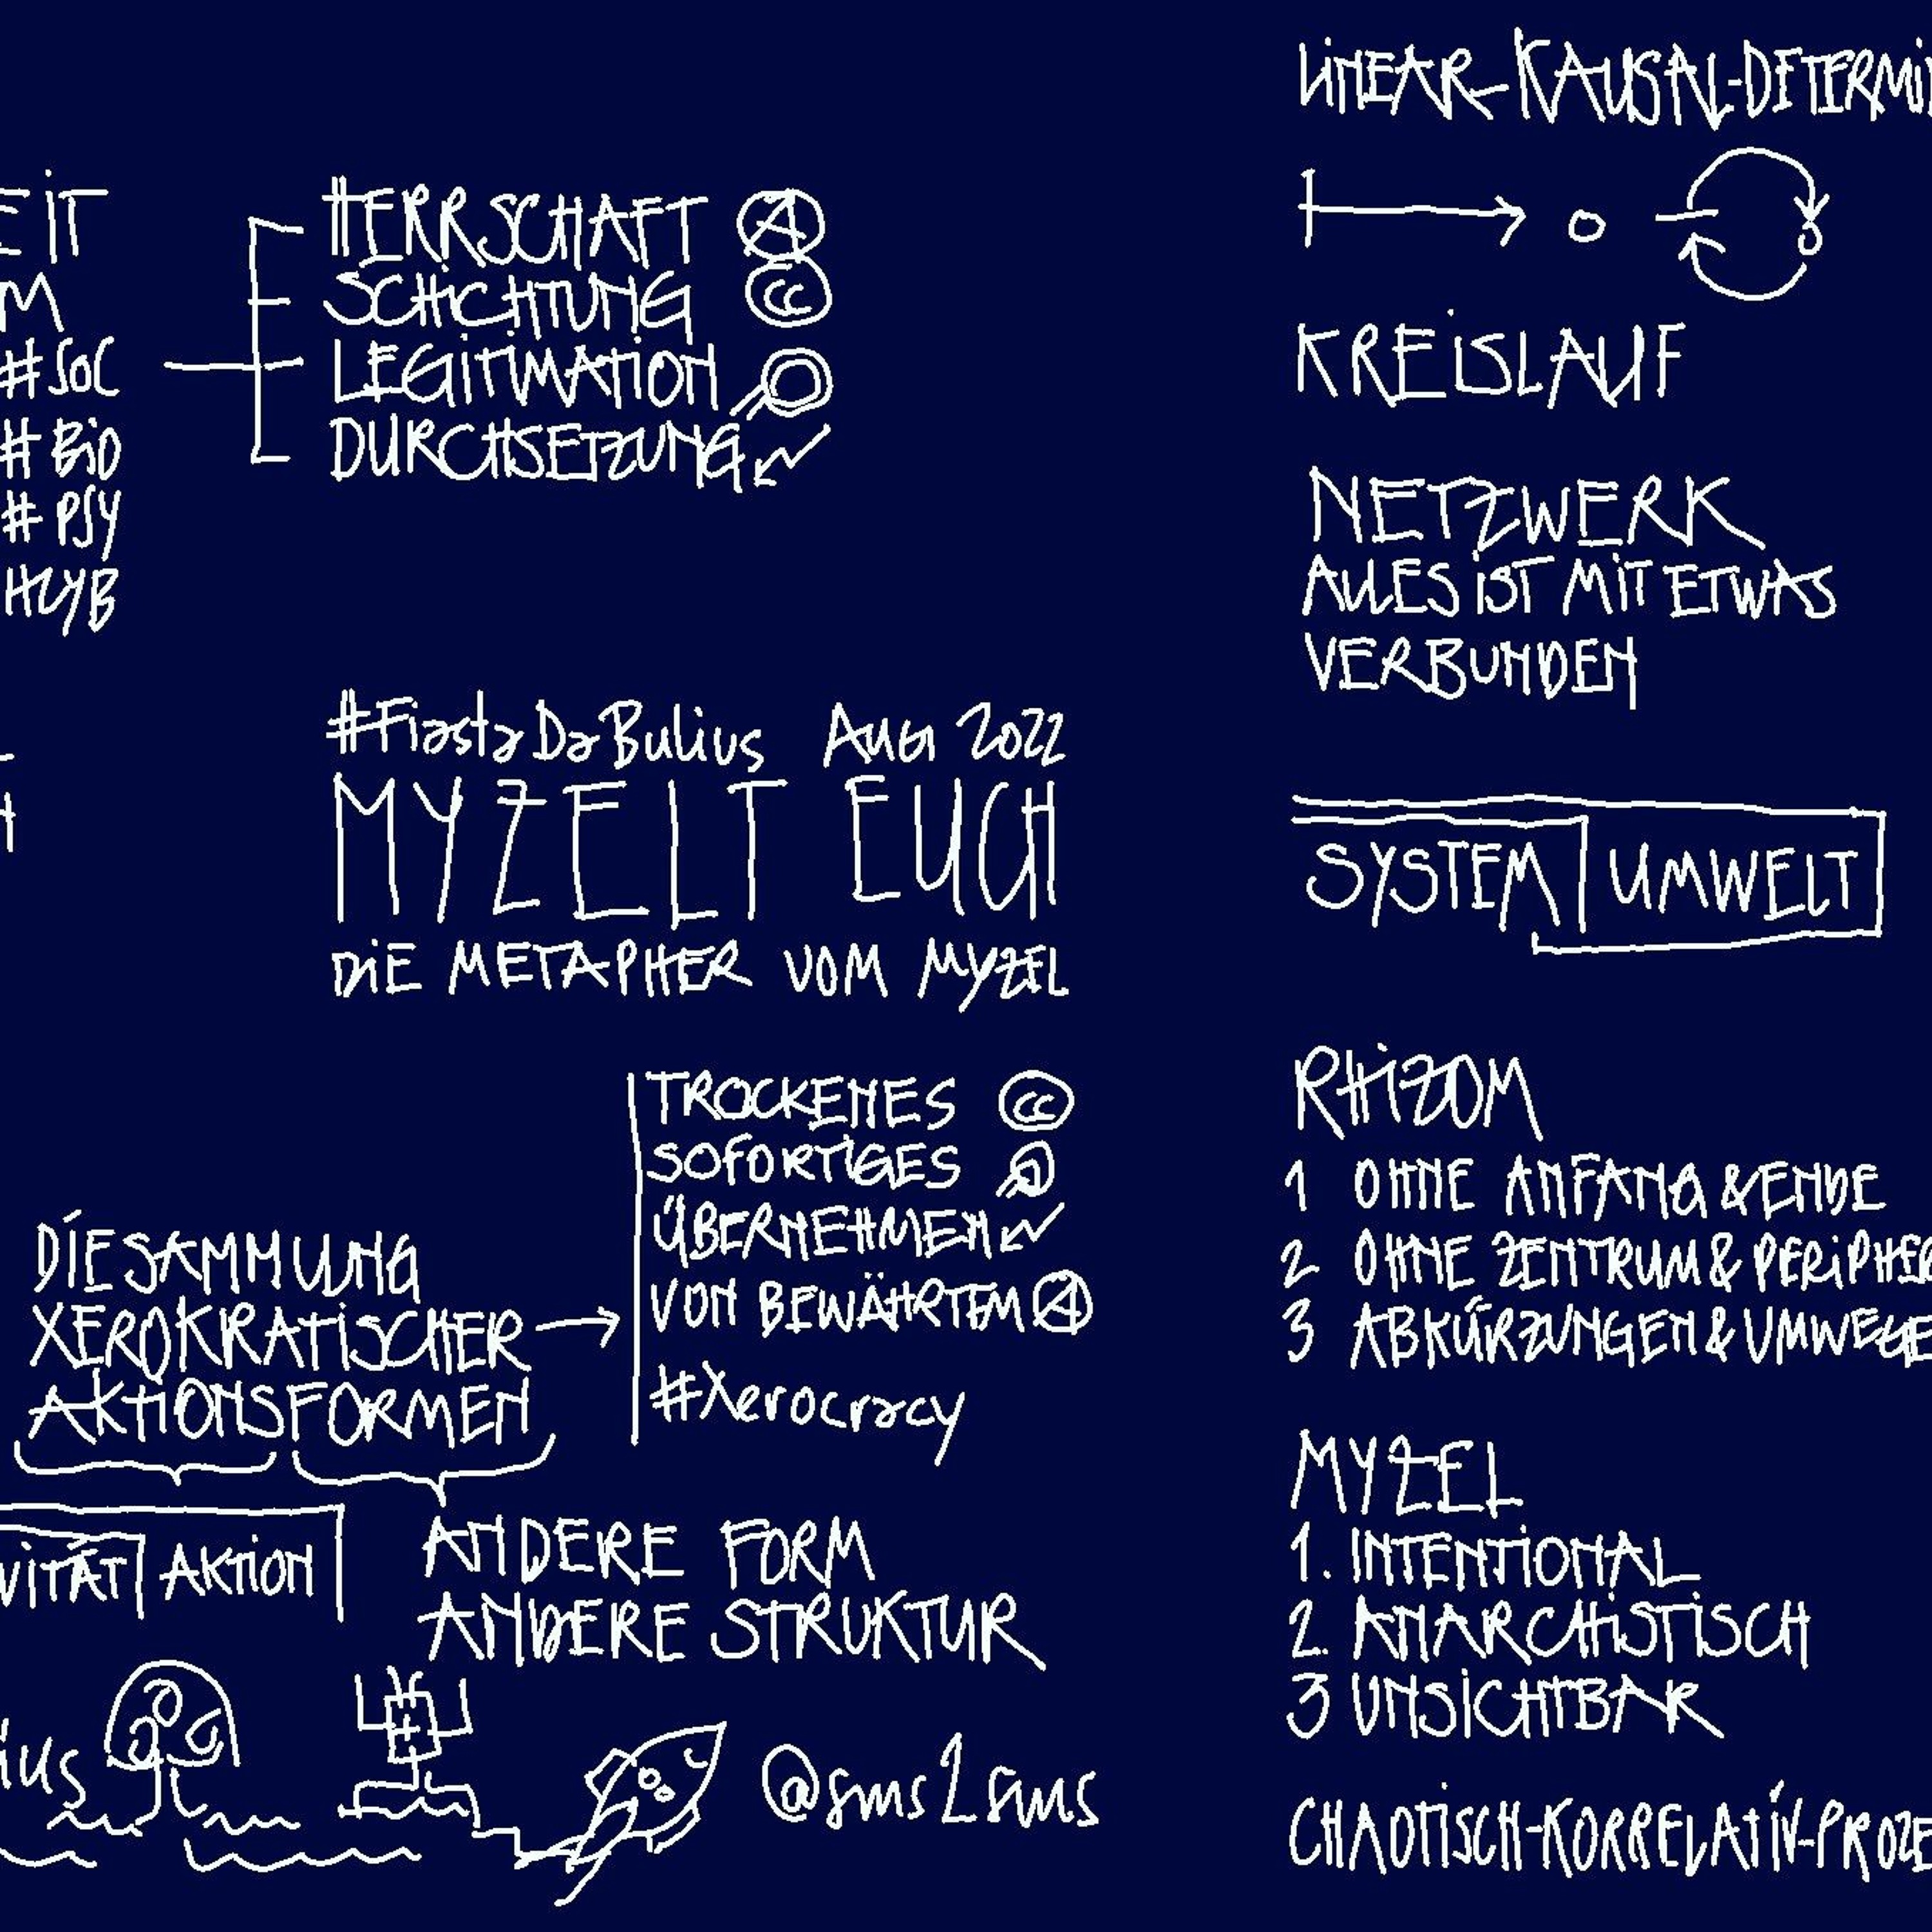 EIT
M
#SOC
#BIO
#PSY
HYB
HERRSCHAFT Ⓐ
SCHICHTUNG CC
LEGITIMATION
DURCHSETZUNG
#FiastaDaBulius AUG 2022
MYZELT EUCH
DIE METAPHER VOM MYZEL
DIE SAMMLUNG
XEROKRATISCHER
AKTIONSFORMEN
TROCKENES CC
SOFORTIGES
ÜBERNEHMEN
VON BEWÄHRTEM Ⓐ
#Xerocracy
VITÄT AKTION
ANDERE FORM
ANDERE STRUKTUR
ius
@sms2sms
LINEAR-KAUSAL-DETERMI
KREISLAUF
NETZWERK
ALLES IST MIT ETWAS
VERBUNDEN
SYSTEM UMWELT
RHIZOM
1 OHNE ANFANG & ENDE
2 OHNE ZENTRUM & PERIPHER
3 ABKÜRZUNGEN & UMWEGE
MYZEL
1. INTENTIONAL
2. ANARCHISTISCH
3 UNSICHTBAR
CHAOTISCH-KORRELATIV-PROZE